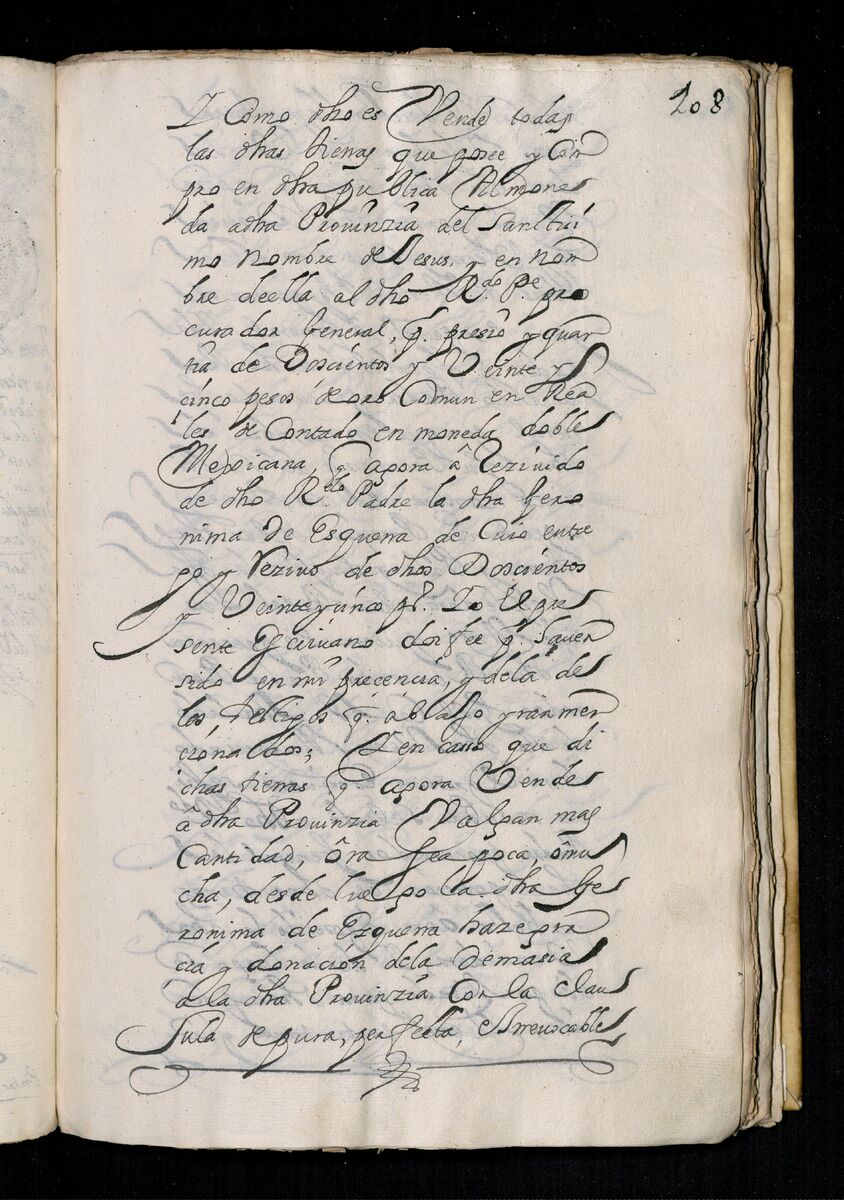 208
Y Como dho es Vende todas
las dhas tierras que posee y Com
pro en dha publica Almone
da adha Provinzia del Sanctisi
mo Nombre de Jesus, y en nom
bre deella al dho R.do P.e pro
curador General, q. presio y quan
tia de Doscientos y Veinte y
cinco pesos de oro Comun en Rea
les de Contado en moneda doble
Mexicana, q. agora â Rezivido
de dho R.do Padre la dha Gero
nima de Esguerra de Cuio entre
go y Rezivo de dhos Doscientos
y Veinte y cinco p.s. Yo El pre
sente Escrivano doi fee q. Saver
sido en mi precencia, y dela de
los testigos q. abaxo yran men
cionados; Y en casso que di
chas tierras q. agora Vende
â dha Provinzia Valgan mas
Cantidad, ôra sea poca, ômu
cha, desde luego la dha Ge
ronima de Ezguerra haze gra
cia y donacion dela Demasia
â la dha Provinzia Con la Clau
sula de pura, perfecta, e Yrrevocable